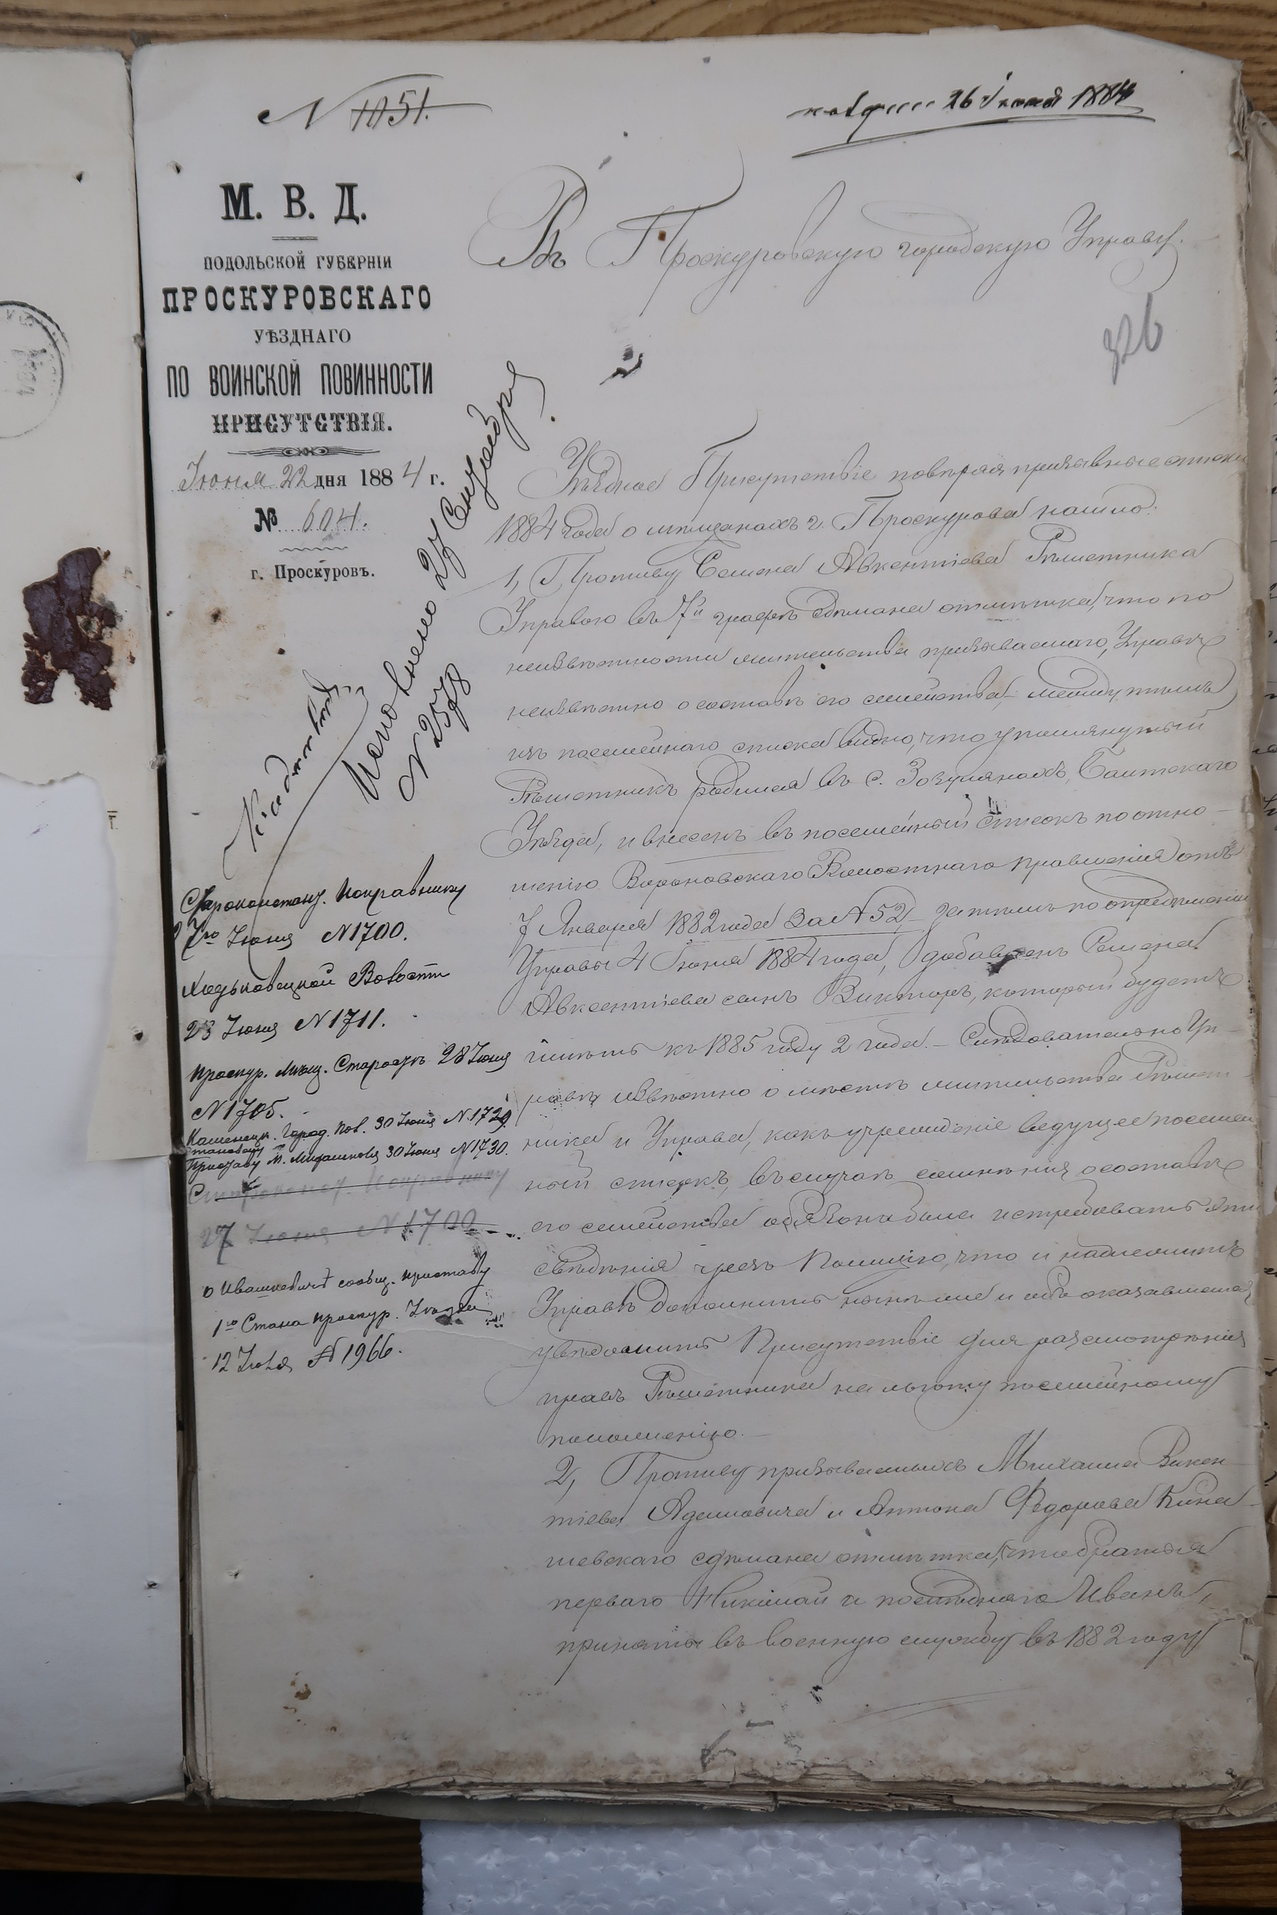 N 1051.
26 Іюня 1884
М. В. Д.
ПОДОЛЬСКОЙ ГУБЕРНІИ
ПРОСКУРОВСКАГО
УѢЗДНАГО
ПО ВОИНСКОЙ ПОВИННОСТИ
ПРИСУТСТВІЯ.
Іюня 22 дня 1884 г.
№ 604.
г. Проскуровъ.
Въ Проскуровскую городскую Управу.
326
Исполнено 27 Сентября
N 2578
Уѣздное Присутствіе повѣряя призывные списки
1884 года о мѣщанахъ г. Проскурова нашло:
1, Противу Семена Авксентіева Рѣшетника
Управою въ 7й графѣ сдѣлана отмѣтка, что по
неизвѣстности жительства призываемаго, Управѣ
неизвѣстно о составѣ его семейства, между тѣмъ
изъ посемейнаго списка видно, что упомянутый
Рѣшетникъ родился въ с. Зозулянахъ, Балтскаго
Уѣзда, и внесенъ въ посемейный списокъ по отно-
шенію Вороновскаго Волостнаго Правленія отъ
7 Января 1882 года за N 52, затѣмъ по опредѣленію
Управы 4 Іюня 1884 года, добавленъ Семена
Авксентіева сынъ Викторъ, который будетъ
имѣть къ 1885 году 2 года. - Слѣдовательно Уп-
равѣ извѣстно о мѣстѣ жительства Рѣшет-
ника и Управа, какъ учрежденіе ведущее посемей-
ный списокъ, въ случаѣ сомнѣнія о составѣ
его семейства обязана была истребовать эти
свѣдѣнія чрезъ Полицію, что и надлежитъ
Управѣ дополнить нынѣ же и объ оказавшемся
увѣдомить Присутствіе для разсмотрѣнія
правъ Рѣшетника на льготу по семейному
положенію.
2, Противу призываемыхъ Михаила Викен-
тіева Адамовича и Антона Федорова Кина-
шевскаго сдѣлана отмѣтка, что братья
перваго Николай и послѣдняго Иванъ,
приняты въ военную службу въ 1882 году
Староконстант. Исправнику
27го Іюня N 1700.
Волости
28 Іюня N 1711.
Проскур. Мѣщ. Старостѣ 28 Іюня
N 1705.
Каменецк. Город. Пол. 30 Іюня N 1729
Становому
Приставу М. 30 Іюня N 1730.
27 Іюня N 1700
о Ивашкевичѣ сообщ. Приставу
1го Стана Проскур. Уѣзда
12 Іюля N 1966.